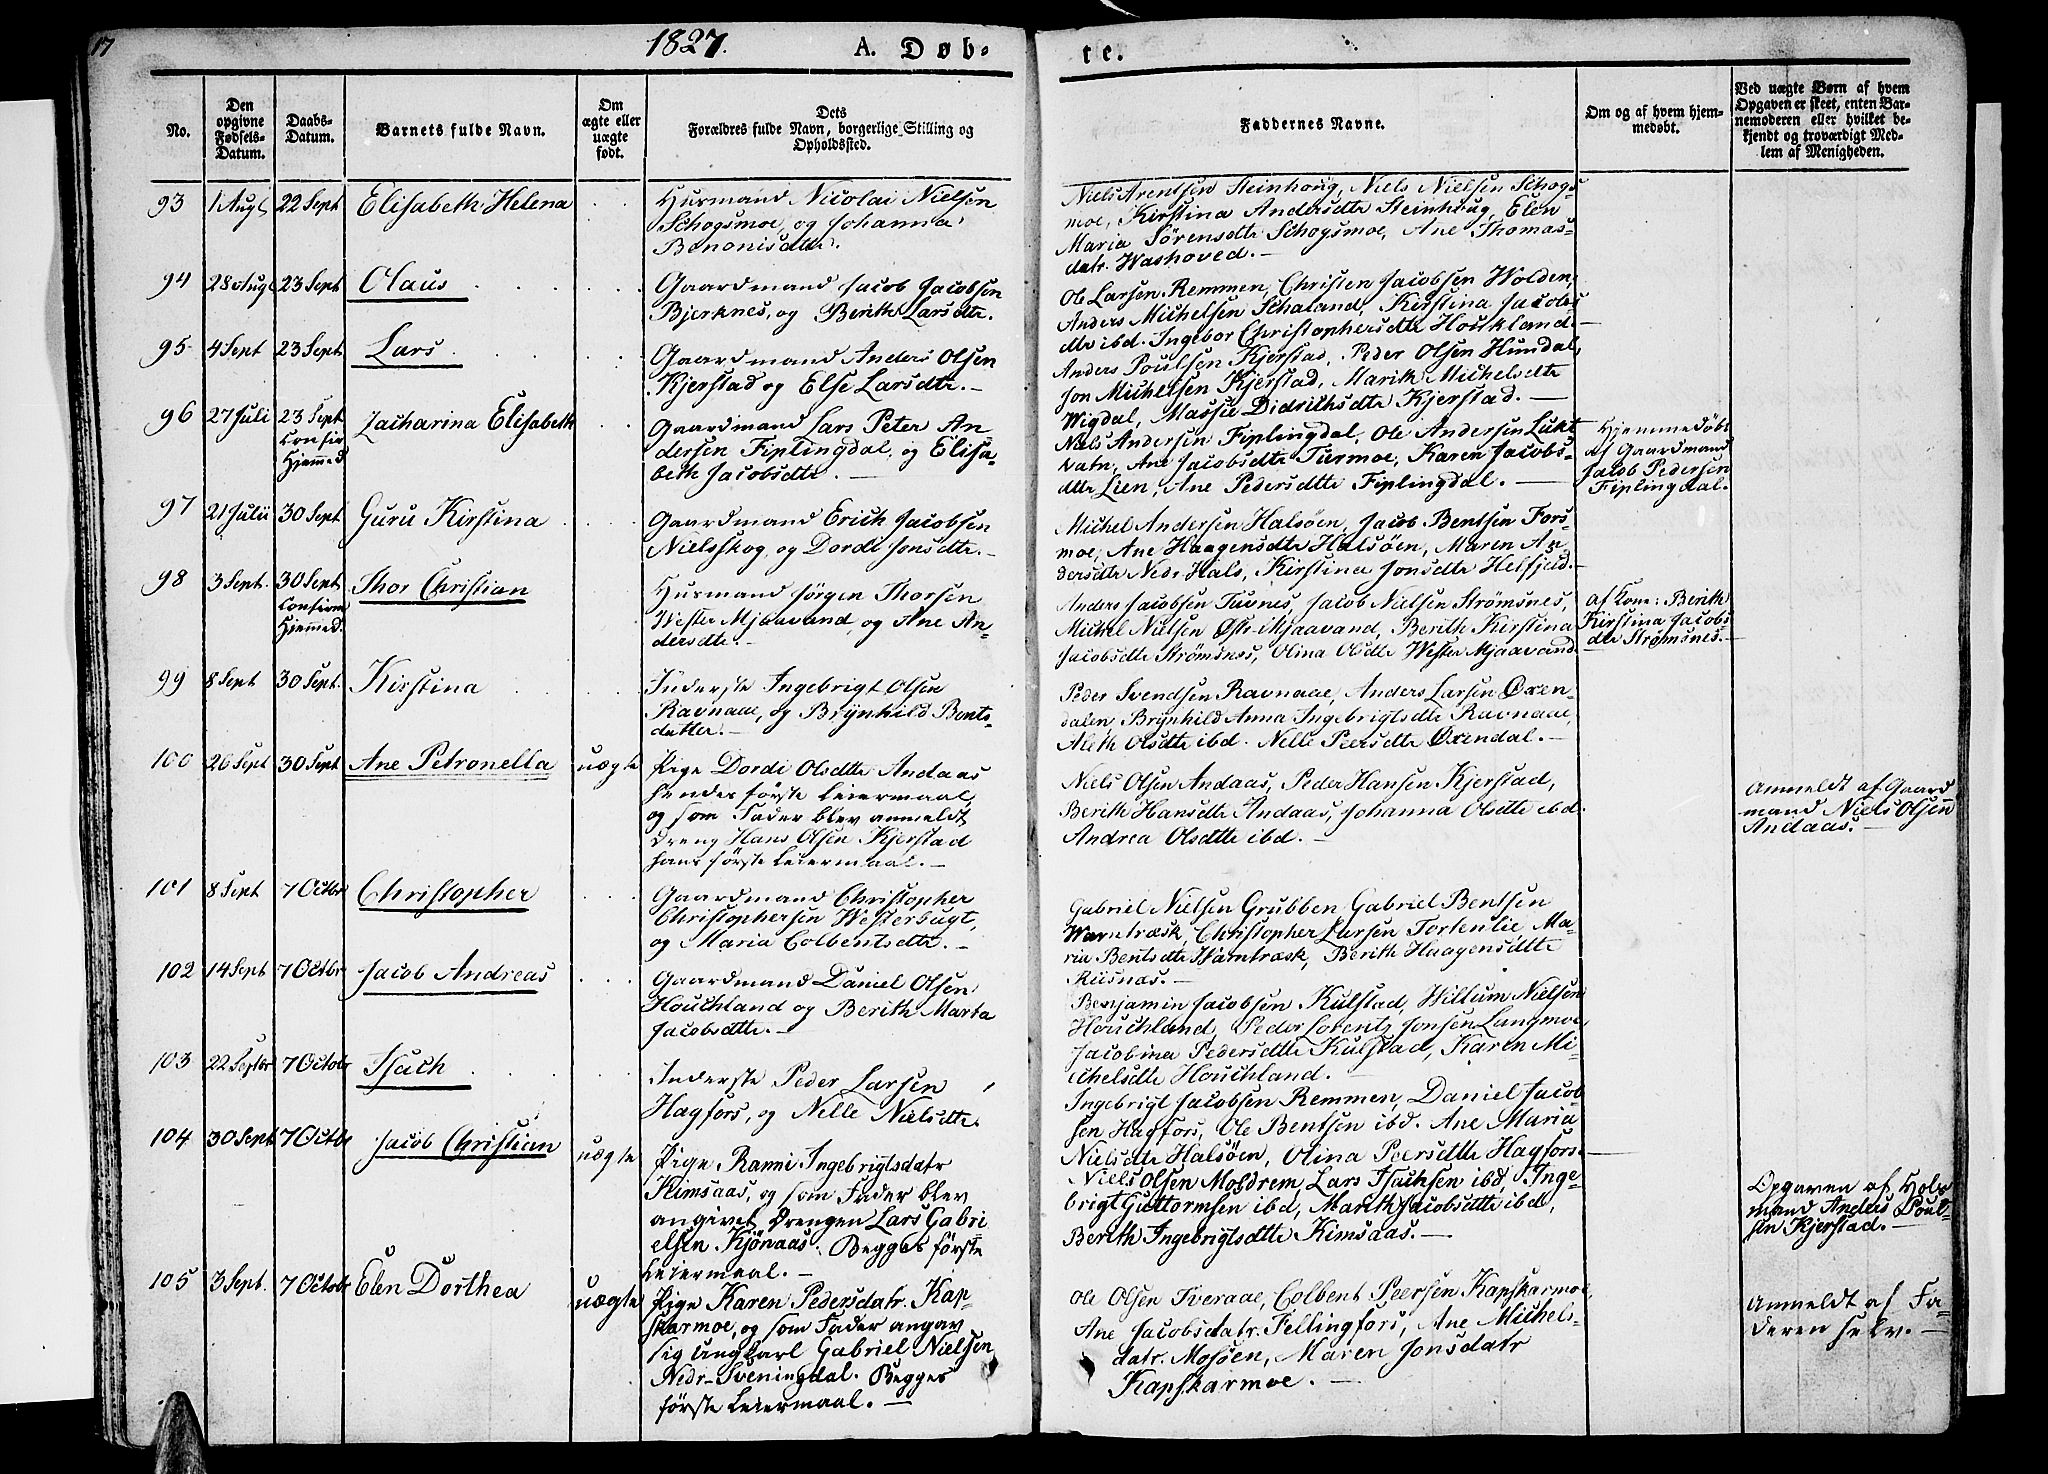 17
1827.
A. Døb-
te.
No.
Den
opgivne
Fødsels-
Datum.
Daabs-
Datum.
Barnets fulde Navn.
Om
ægte eller
uægte
født.
Dets
Forældres fulde Navn, borgerlige Stilling og
Opholdssted.
Faddernes Navne.
Om og af hvem hjem-
medøbt.
Ved uægte Børn af hvem
Opgaven er skeet, enten Bar-
nemoderen eller hvilket be-
kjendt og troværdigt Med-
lem af Menigheden.
93
1 Aug
22 Sept
Elisabeth Helena
Husmand Nicolai Nielsen
Schogsmoe, og Johanna
Benonisdtr.
Niels Arentsen Steinhoug, Niels Nielsen Schogs-
moe, Kirstina Andersdtr Steinhoug, Elen
Maria Sørensdtr Schogsmoe, Ane Thomas-
datr. Washoved.
94
28 Aug
23 Sept
Olaus
Gaardmand Jacob Jacobsen
Bjerknes, og Berith Larsdtr.
Ole Larsen Remmen, Christen Jacobsen Wolden,
Anders Michelsen Schaland, Kirstina Jacobs
dtr ibd. Ingebor Christophersdtr Houkland.
95
4 Sept
23 Sept
Lars
Gaardmand Anders Olsen
Kjerstad og Else Larsdtr.
Anders Poulsen Kjerstad, Peder Olsen Hundal,
Jon Michelsen Kjerstad, Marith Michelsdtr
Wigdal, Massie Didrichsdtr Kjerstad.
96
27 Juli
23 Sept
Confir
Hjemmed
Zacharina Elisabeth
Gaardmand Lars Peter An
dersen Fiplingdal, og Elisa-
beth Jacobsdtr.
Niels Andersen Fiplingdal, Ole Andersen Lukt
vatn, Ane Jacobsdtr Turmoe, Karen Jacobs-
dtr Lien, Ane Pedersdtr Fiplingdal.
Hjemmedöbt
af Gaardmand
Jacob Pedersen
Fiplingdal.
97
21 Julii
30 Sept
Guru Kirstina
Gaardmand Erich Jacobsen
Nielsskog, og Dordi Jonsdtr.
Michel Andersen Halsöen, Jacob Bentsen Fors-
moe, Ane Haagensdtr Halsöen, Maren An
dersdtr Nedr Hals, Kirstina Jonsdtr Helfjeld.
98
3 Sept.
30 Sept
Confirm
Hjemmed.
Thor Christian
Husmand Jörgen Thorsen
Wester Mjaavand, og Ane An-
dersdtr.
Anders Jacobsen Tuvnes, Jacob Nielsen Strömsnes,
Michel Nielsen Øster Mjaavand, Berith Kirstina
Jacobsdtr Strömsnes, Olina Olsdtr Wester Mjaavand.
af Kone: Berith
Kirstina Jacobs
dtr Strømsnes.
99
8 Sept
30 Sept.
Kirstina
Inderste Ingebrigt Olsen
Ravnaae, og Brÿnhild Bents-
datter.
Peder Svendsen Ravnaae, Anders Larsen Øxen-
dalen Brÿnhild Anna Ingebrigtsdtr Ravnaae,
Aleth Olsdtr ibd. Nelle Peersdtr Øxendal.
100
26 Sept
30 Sept
Ane Petronella
uægte
Pige Dordi Olsdtr Andaas
hendes förste Leiermaal,
og som Fader blev anmeldt
Dreng Hans Olsen Kjerstad
hans förste Leiermaal.
Niels Olsen Andaas, Peder Hansen Kjerstad,
Berith Hansdtr Andaas, Johanna Olsdtr ibd.
Andrea Olsdtr ibd.
Anmeldt af Gaard
mand Niels Olsen
Andaas.
101
8 Sept
7 Octbr
Christopher
Gaardmand Christopher
Christophersen Westerbugt,
og Maria Colbentsdtr.
Gabriel Nielsen Grubben Gabriel Bentsen
Warntræsk, Christopher Larsen Tortenlie, Ma-
ria Bentsdtr Warntræsk, Berith Haagensdtr
Rüsnæs.
102
14 Sept
7 Octbr
Jacob Andreas
Gaardmand Daniel Olsen
Houchland og Berith Marta
Jacobsdtr.
Benjamin Jacobsen Kulstad, Willum Nielsen
Houchland, Peder Lorentz Jonsen Langmoe,
Jacobina Pedersdtr Kulstad, Karen Mi-
chelsdtr Houchland.
103
22 Septbr
7 Octobr
Isach
Inderste Peder Larsen
Hagfors, og Nelle Nielsdtr.
Ingebrigt Jacobsen Remmen, Daniel Jacob
sen Hagfors, Ole Bentsen ibd. Ane Maria
Nielsdtr Halsöen, Olina Peersdtr Hagfors.
104
30 Sept
7 Octbr
Jacob Christian
uægte
Pige Ranni Ingebrigtsdatr
Kimsaas, og som Fader blev
angivet Drengen Lars Gabri
elsen Kjönaas. Begges förste
Leiermaal.
Niels Olsen Mosdrem, Lars Isachsen ibd, Inge-
brigt Guttormsen ibd, Marith Jacobsdtr ibd,
Berith Ingebrigtsdtr Kimsaas.
Opgaven af Hols
mand Anders Poul-
sen Kjerstad.
105
3 Sept.
7 Octobr
Elen Dorthea
uægte
Pige Karen Pedersdatr. Kap-
skarmoe, og som Fader angav
sig Ungkarl Gabriel Nielsen
Nedr-Sveningdal. Begges
förste Leiermaal.
Ole Olsen Tveraae, Colbent Peersen Kapskarmoe,
Ane Jacobsdatr. Fellingfors, Ane Michels-
datr. Mosöen, Maren Jonsdatr
Kapskarmoe.
Anmeldt af Fa-
deren selv.